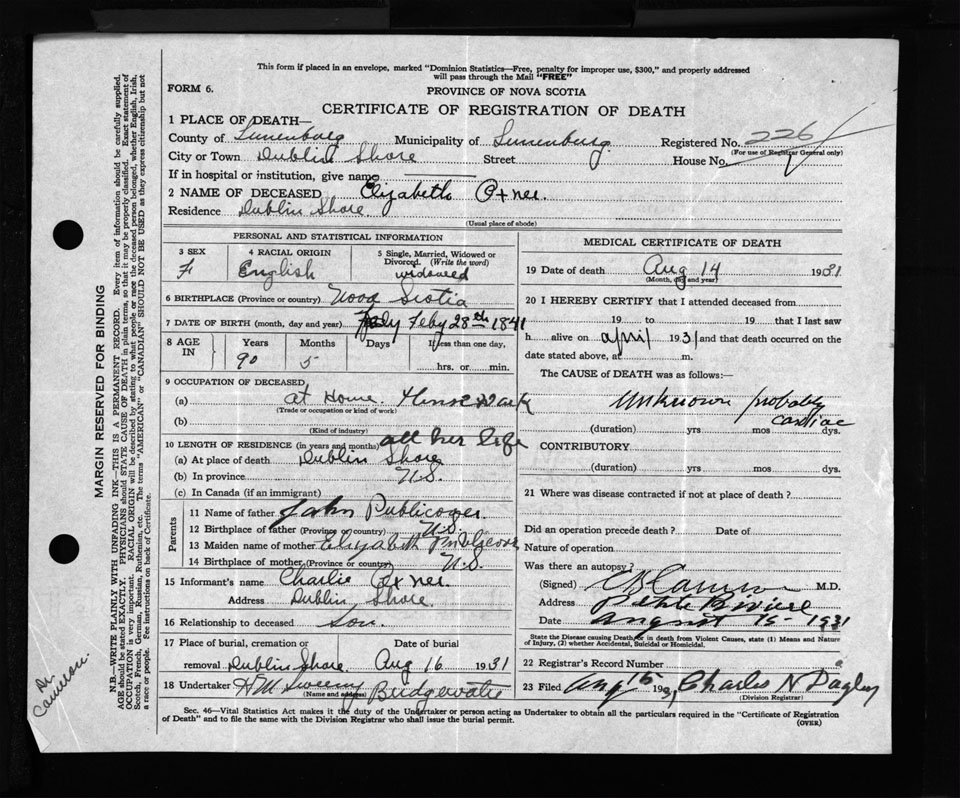 This form if placed in an envelope, marked "Dominion Statistics—Free, penalty for improper use, $300," and properly addressed
will pass through the Mail "FREE"
FORM 6.
PROVINCE OF NOVA SCOTIA
CERTIFICATE OF REGISTRATION OF DEATH
1 PLACE OF DEATH—
County of Lunenburg Municipality of Lunenburg Registered No. 226
(For use of Registrar General only)
City or Town Dublin Shore Street House No.
If in hospital or institution, give name
2 NAME OF DECEASED Elizabeth Oxner.
Residence Dublin Shore.
(Usual place of abode)
PERSONAL AND STATISTICAL INFORMATION
3 SEX 4 RACIAL ORIGIN 5 Single, Married, Widowed or Divorced. (Write the word)
F English widowed
6 BIRTHPLACE (Province or country) Nova Scotia
7 DATE OF BIRTH (month, day and year) Feby 28th 1841
8 AGE IN Years Months Days If less than one day,
90 5 hrs. or min.
9 OCCUPATION OF DECEASED
(a) at Home. House Work
(Trade or occupation or kind of work)
(b)
(Kind of industry)
10 LENGTH OF RESIDENCE (in years and months) all her life
(a) At place of death Dublin Shore
(b) In province N.S.
(c) In Canada (if an immigrant)
Parents
11 Name of father John Publicover.
12 Birthplace of father (Province or country) N.S.
13 Maiden name of mother Elizabeth
14 Birthplace of mother (Province or country) N.S.
15 Informant's name Charlie Oxner.
Address Dublin Shore.
16 Relationship to deceased son.
17 Place of burial, cremation or Date of burial
removal Dublin Shore. Aug 16 1931
18 Undertaker H M Sweeny Bridgewater
(Name and address)
MEDICAL CERTIFICATE OF DEATH
19 Date of death Aug 14 1931
(Month, day and year)
20 I HEREBY CERTIFY that I attended deceased from
19 to 19 that I last saw
h alive on april 1931 and that death occurred on the
date stated above, at m.
The CAUSE of DEATH was as follows:—
Unknown probably
cardiac
(duration) yrs mos dys.
CONTRIBUTORY
(duration) yrs mos dys.
21 Where was disease contracted if not at place of death?
Did an operation precede death? Date of
Nature of operation
Was there an autopsy?
(Signed) Cameron M.D.
Address Petite Riviere
Date August 15- 1931
State the Disease causing Death, or in death from Violent Causes, state (1) Means and Nature
of Injury, (2) whether Accidental, Suicidal or Homicidal.
22 Registrar's Record Number
23 Filed Aug 15 1931 Charles N Pagley
(Division Registrar)
Sec. 46—Vital Statistics Act makes it the duty of the Undertaker or person acting as Undertaker to obtain all the particulars required in the "Certificate of Registration
of Death" and to file the same with the Division Registrar who shall issue the burial permit.
(OVER)
MARGIN RESERVED FOR BINDING
N.B.—WRITE PLAINLY WITH UNFADING INK—THIS IS A PERMANENT RECORD. Every item of information should be carefully supplied.
AGE should be stated EXACTLY. PHYSICIANS should STATE CAUSE OF DEATH in plain terms, so that it may be properly classified. Exact statement of
OCCUPATION is very important. RACIAL ORIGIN will be described by stating to what people or race the deceased person belonged, whether English, Irish,
Scotch, French, German, Russian, Ruthenian, etc. The terms "AMERICAN" or "CANADIAN" SHOULD NOT BE USED as they express citizenship but not
a race or people. See instructions on back of Certificate.
Dr
Cameron.